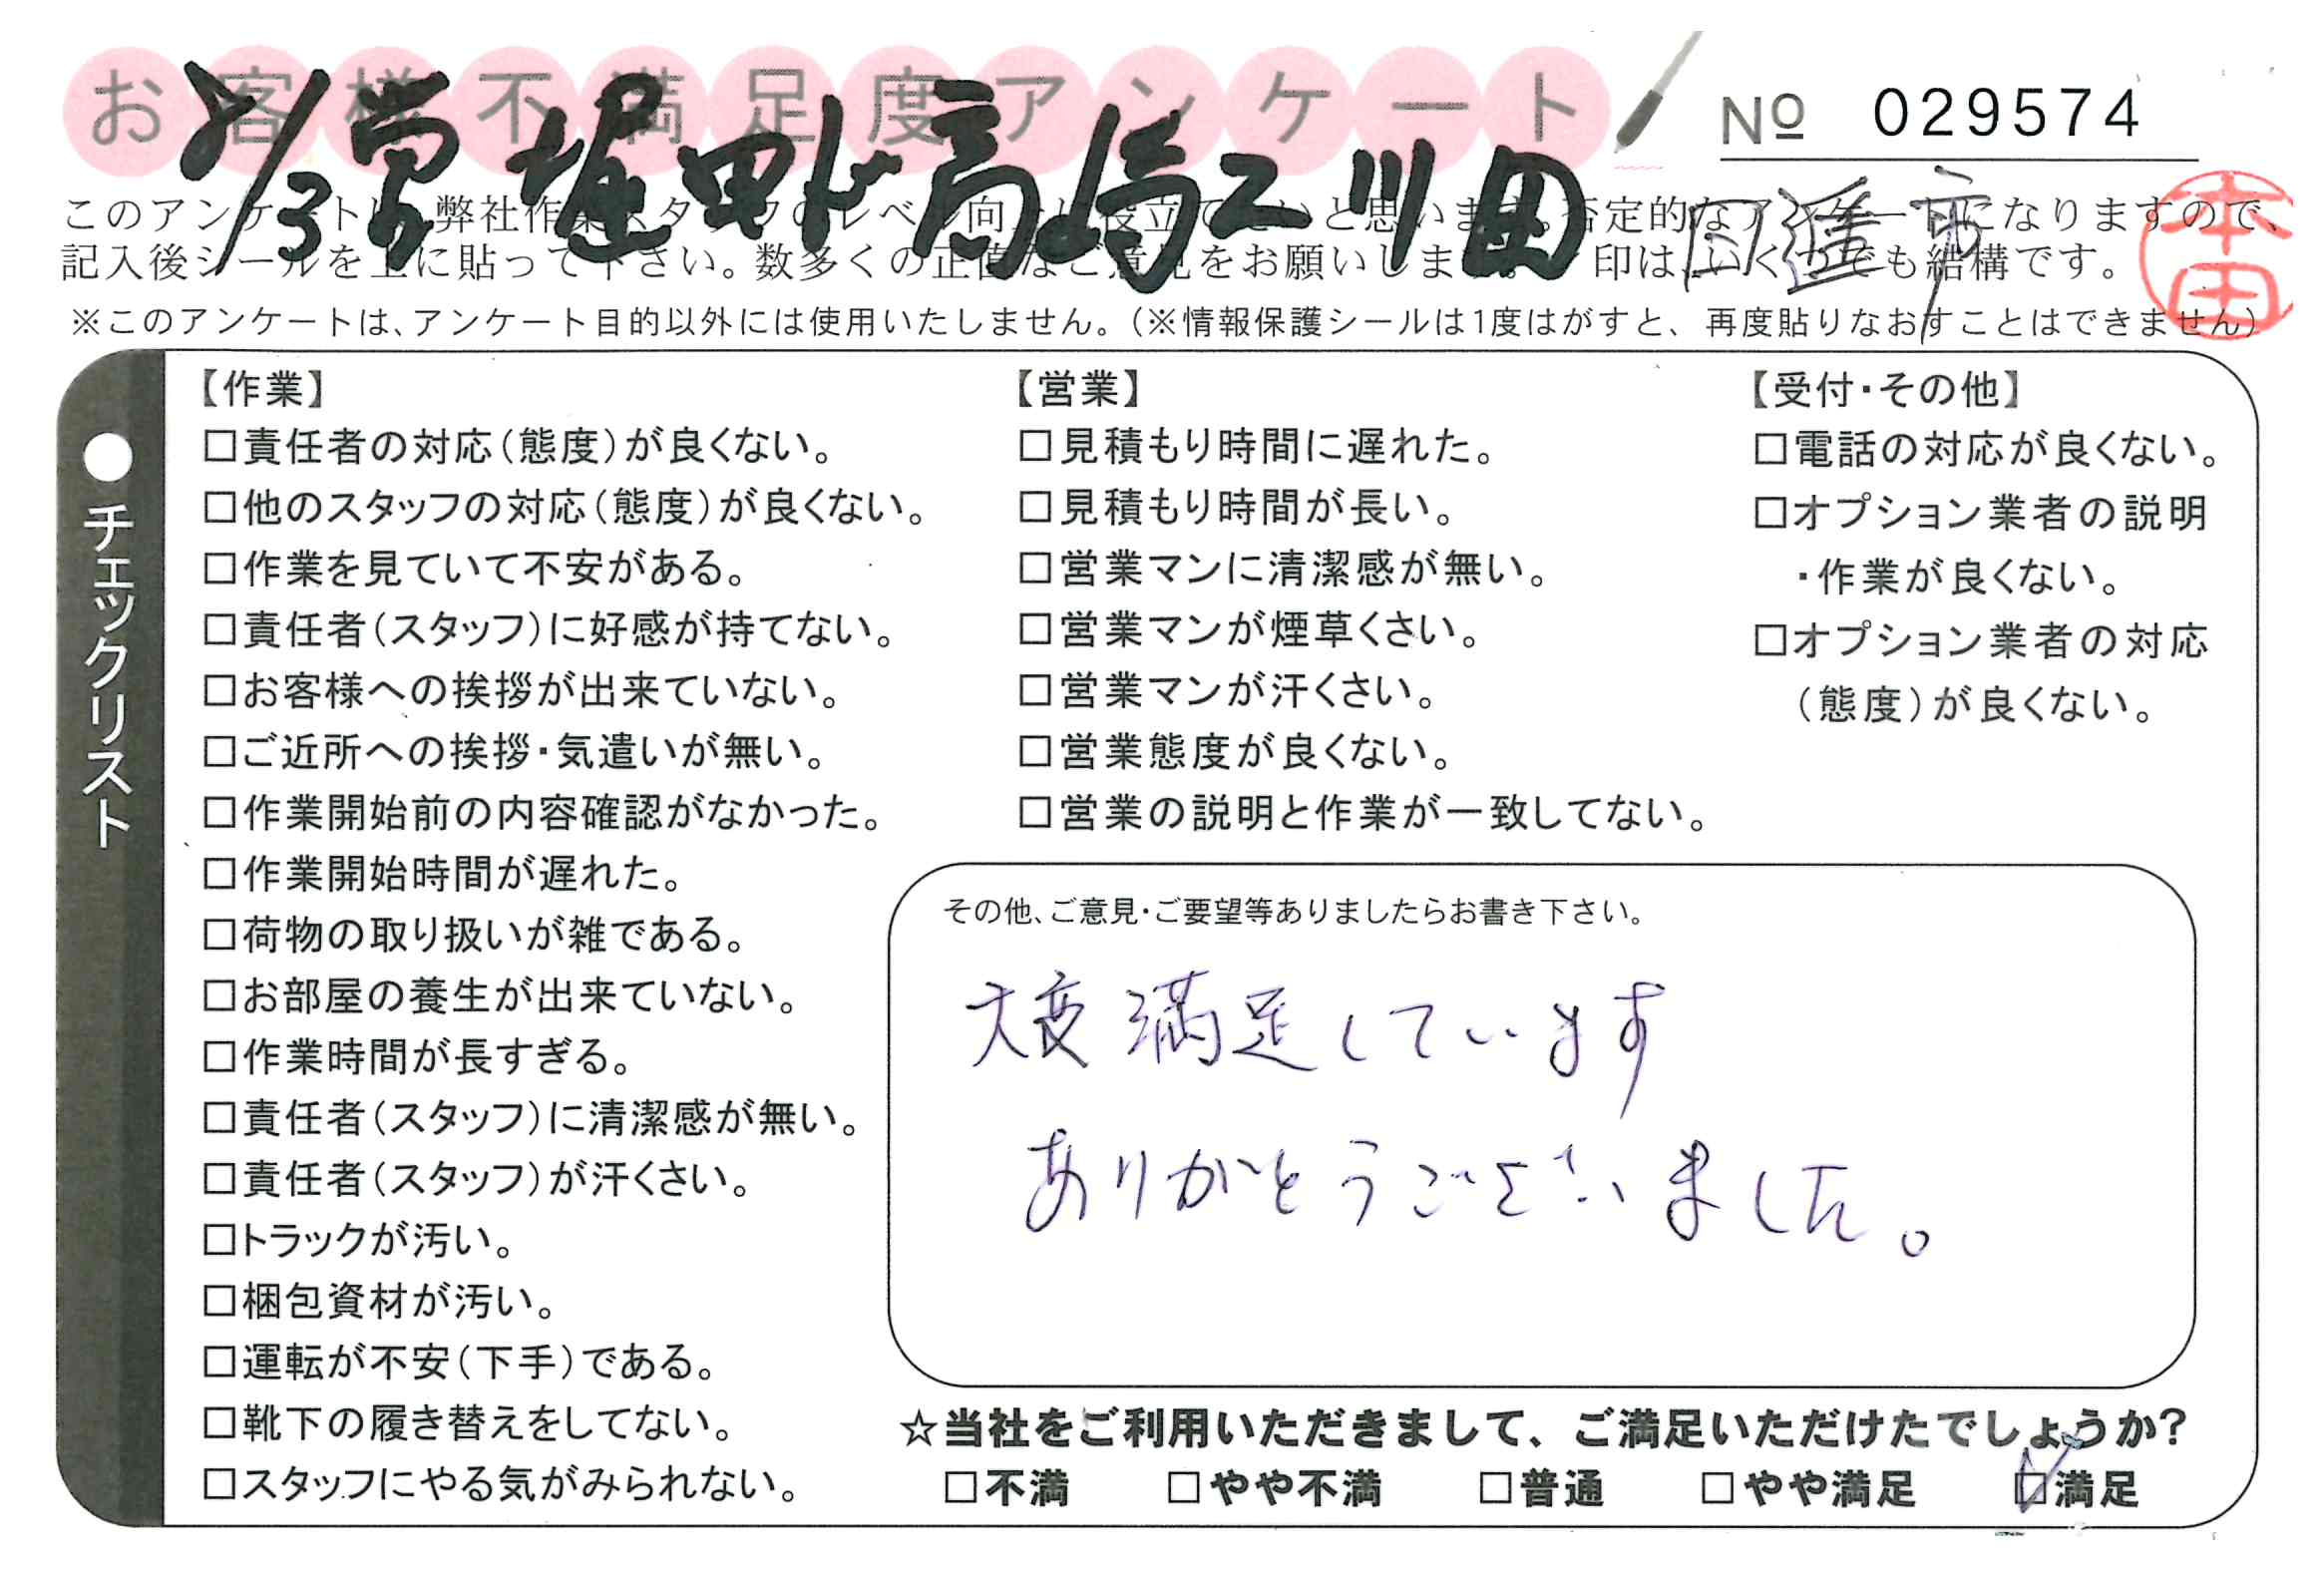 お客様不満足度アンケート
№ 029574
堀田 高
市
本田
このアンケートは、弊社作業スタッフのレベル向上に役立てたいと思います。否定的なアンケートになりますので、
記入後シールを上に貼って下さい。数多くの正直なご意見をお願いします。✓印は、いくつでも結構です。
※このアンケートは、アンケート目的以外には使用いたしません。（※情報保護シールは1度はがすと、再度貼りなおすことはできません）
●チェックリスト
【作業】
□責任者の対応（態度）が良くない。
□他のスタッフの対応（態度）が良くない。
□作業を見ていて不安がある。
□責任者（スタッフ）に好感が持てない。
□お客様への挨拶が出来ていない。
□ご近所への挨拶・気遣いが無い。
□作業開始前の内容確認がなかった。
□作業開始時間が遅れた。
□荷物の取り扱いが雑である。
□お部屋の養生が出来ていない。
□作業時間が長すぎる。
□責任者（スタッフ）に清潔感が無い。
□責任者（スタッフ）が汗くさい。
□トラックが汚い。
□梱包資材が汚い。
□運転が不安（下手）である。
□靴下の履き替えをしてない。
□スタッフにやる気がみられない。
【営業】
□見積もり時間に遅れた。
□見積もり時間が長い。
□営業マンに清潔感が無い。
□営業マンが煙草くさい。
□営業マンが汗くさい。
□営業態度が良くない。
□営業の説明と作業が一致してない。
【受付・その他】
□電話の対応が良くない。
□オプション業者の説明
・作業が良くない。
□オプション業者の対応
（態度）が良くない。
その他、ご意見・ご要望等ありましたらお書き下さい。
大変満足しています
ありがとうございました。
☆当社をご利用いただきまして、ご満足いただけたでしょうか?
□不満 □やや不満 □普通 □やや満足 ☑満足